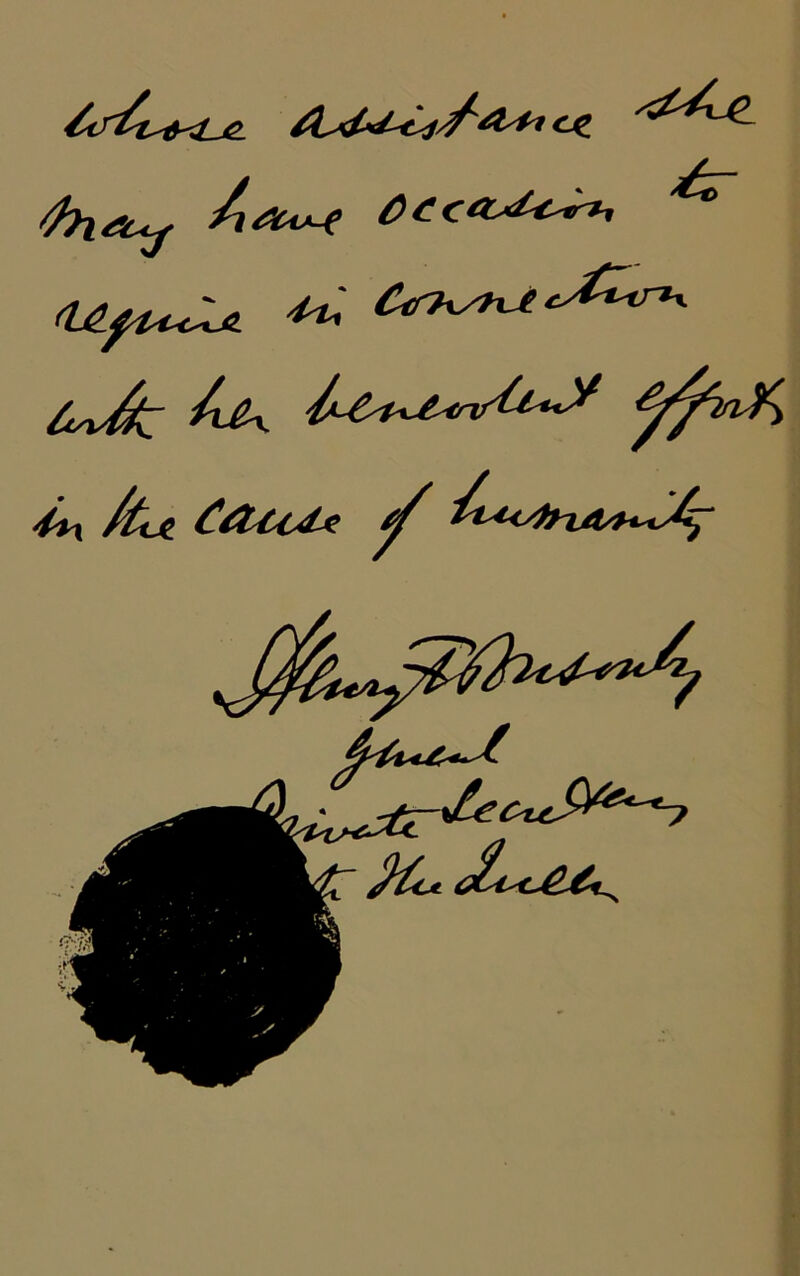 whose assistance she
may have occasion to
require in connection
with her benevolent efforts
in the cause of humanity
Henry F Ponsonby
General
Private Secretary
to The Queen